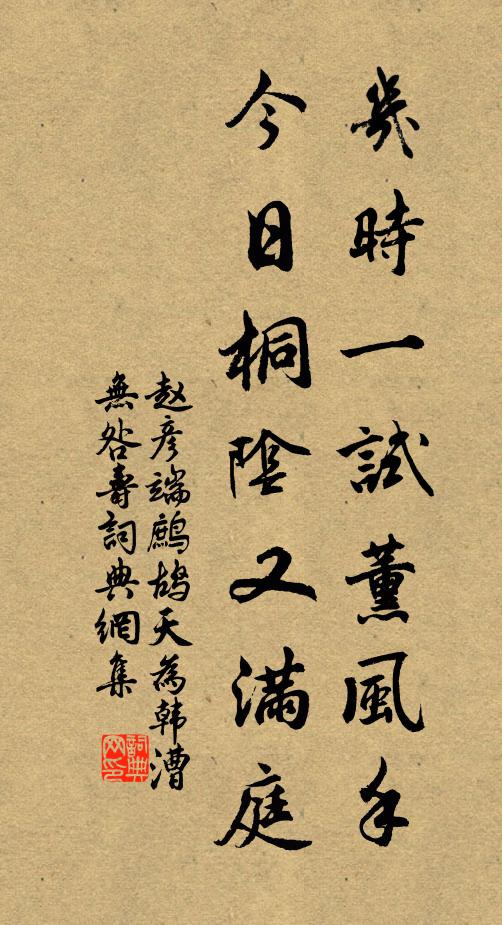 幾時一試薰風手
今日桐陰又滿庭
赵彦端鷓鴣天為韩漕
無咎壽詞典網集
詞典网印